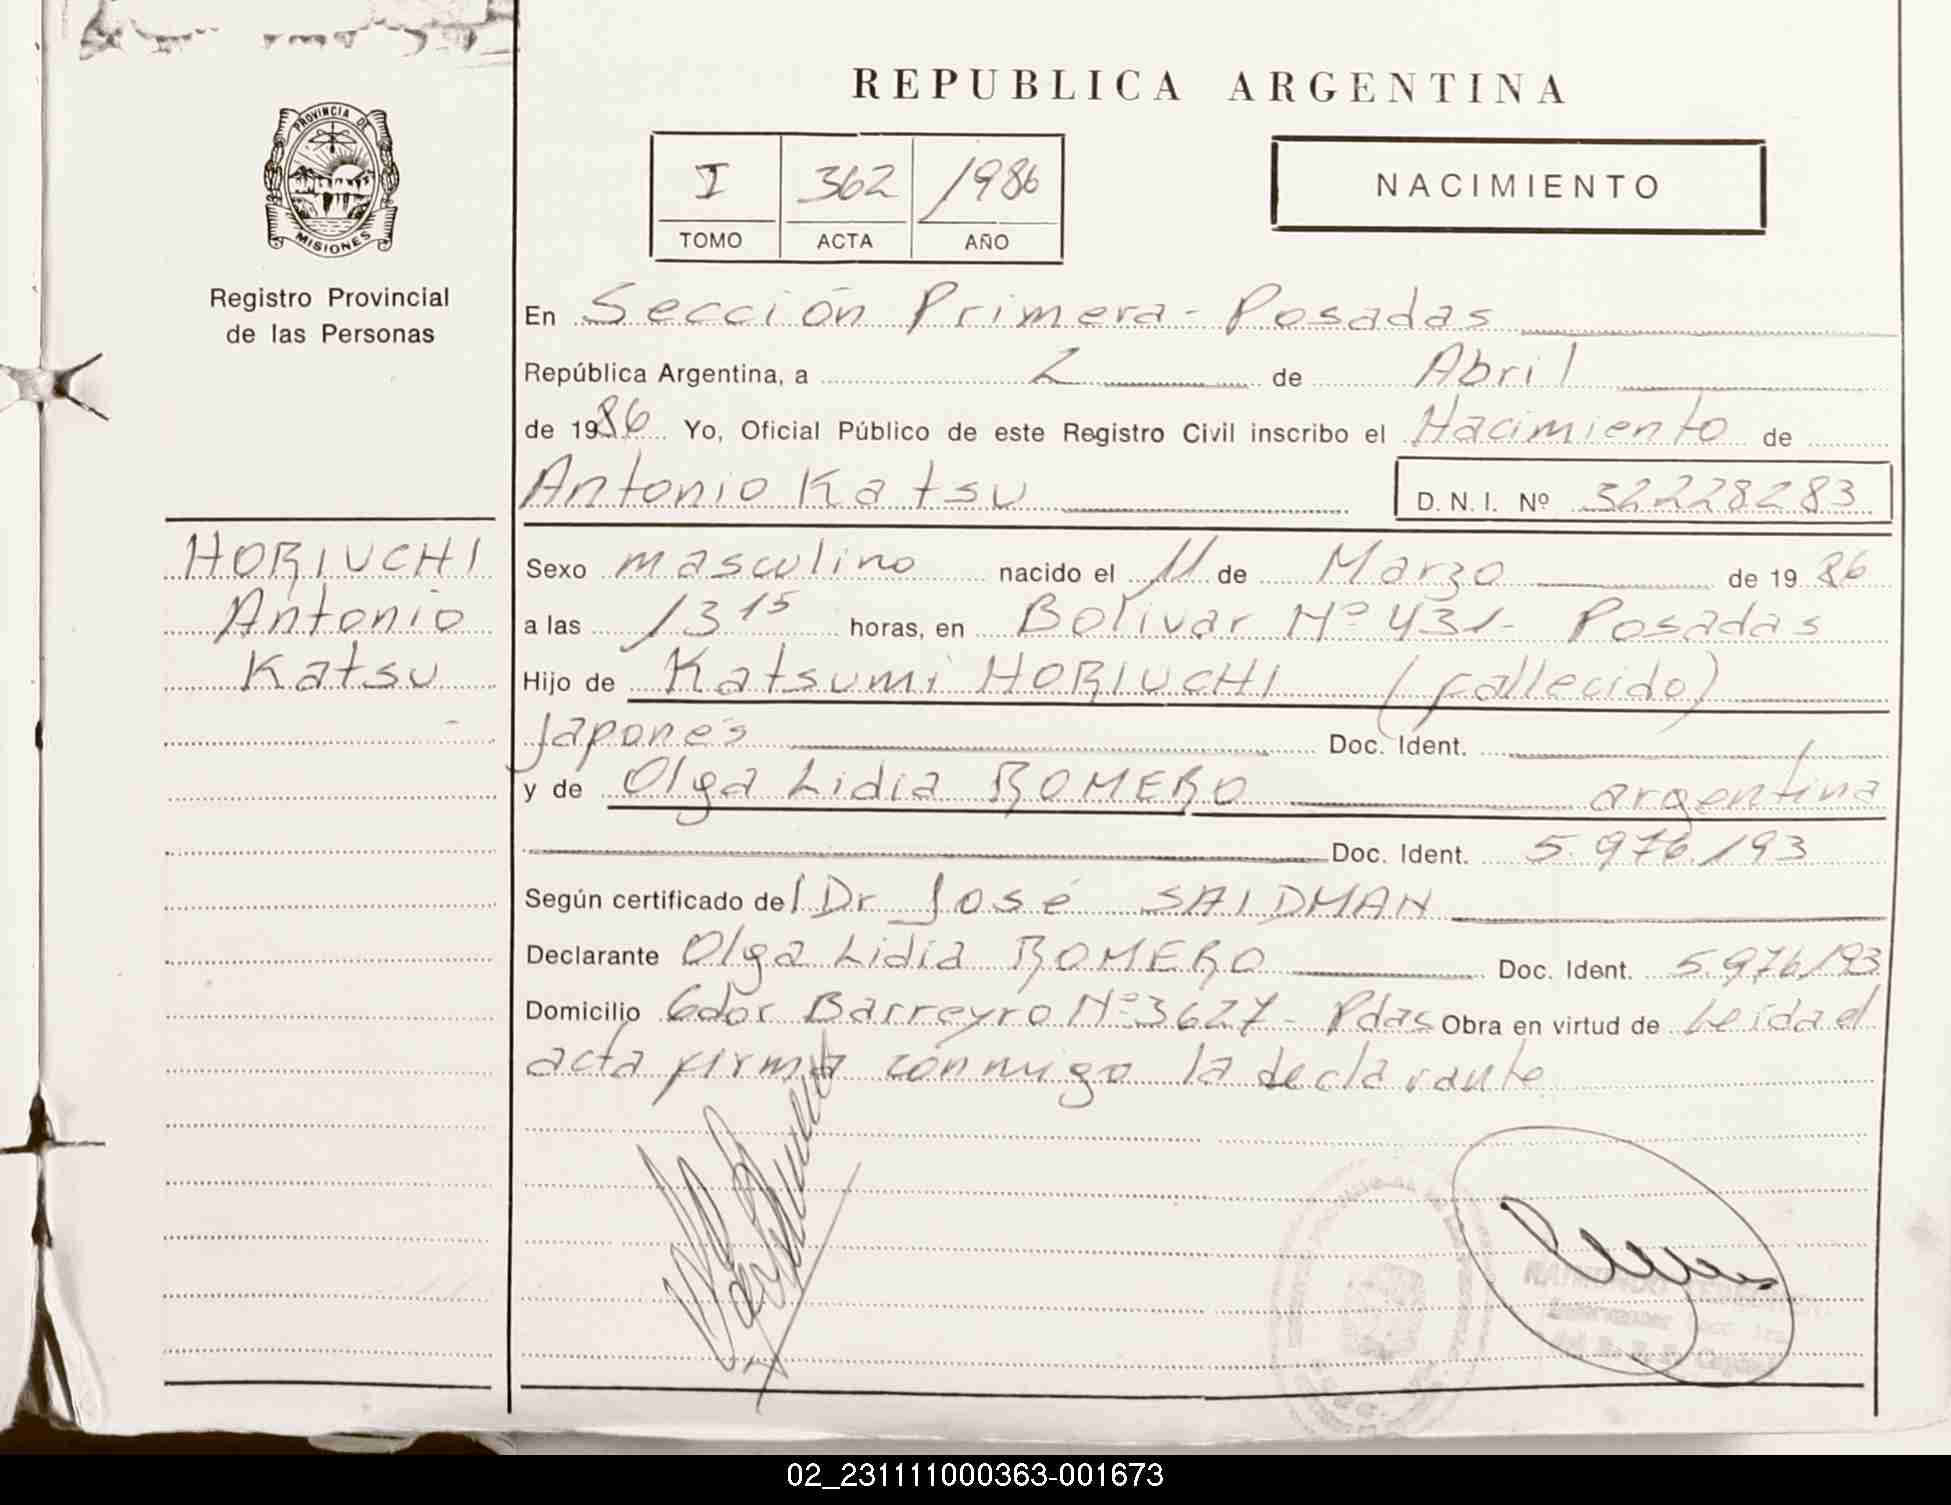 REPUBLICA ARGENTINA
PROVINCIA DE
MISIONES
Registro Provincial
de las Personas
I 362 1986
TOMO ACTA AÑO
NACIMIENTO
En Sección Primera - Posadas
República Argentina, a 2 de Abril
de 1986 Yo, Oficial Público de este Registro Civil inscribo el Nacimiento de
Antonio Katsu D. N. I. Nº 32228283
HORIUCHI
Antonio
Katsu
Sexo masculino nacido el 11 de Marzo de 1986
a las 13 15 horas, en Bolivar Nº 431- Posadas
Hijo de Katsumi HORIUCHI (fallecido)
Japonés Doc. Ident.
y de Olga Lidia ROMERO argentina
Doc. Ident. 5.976.193
Según certificado del Dr José SAIDMAN
Declarante Olga Lidia ROMERO Doc. Ident. 5.976.193
Domicilio Gdor Barreyro Nº 3627- Pdas Obra en virtud de Leída el
acta firma conmigo la declarante
02_231111000363-001673